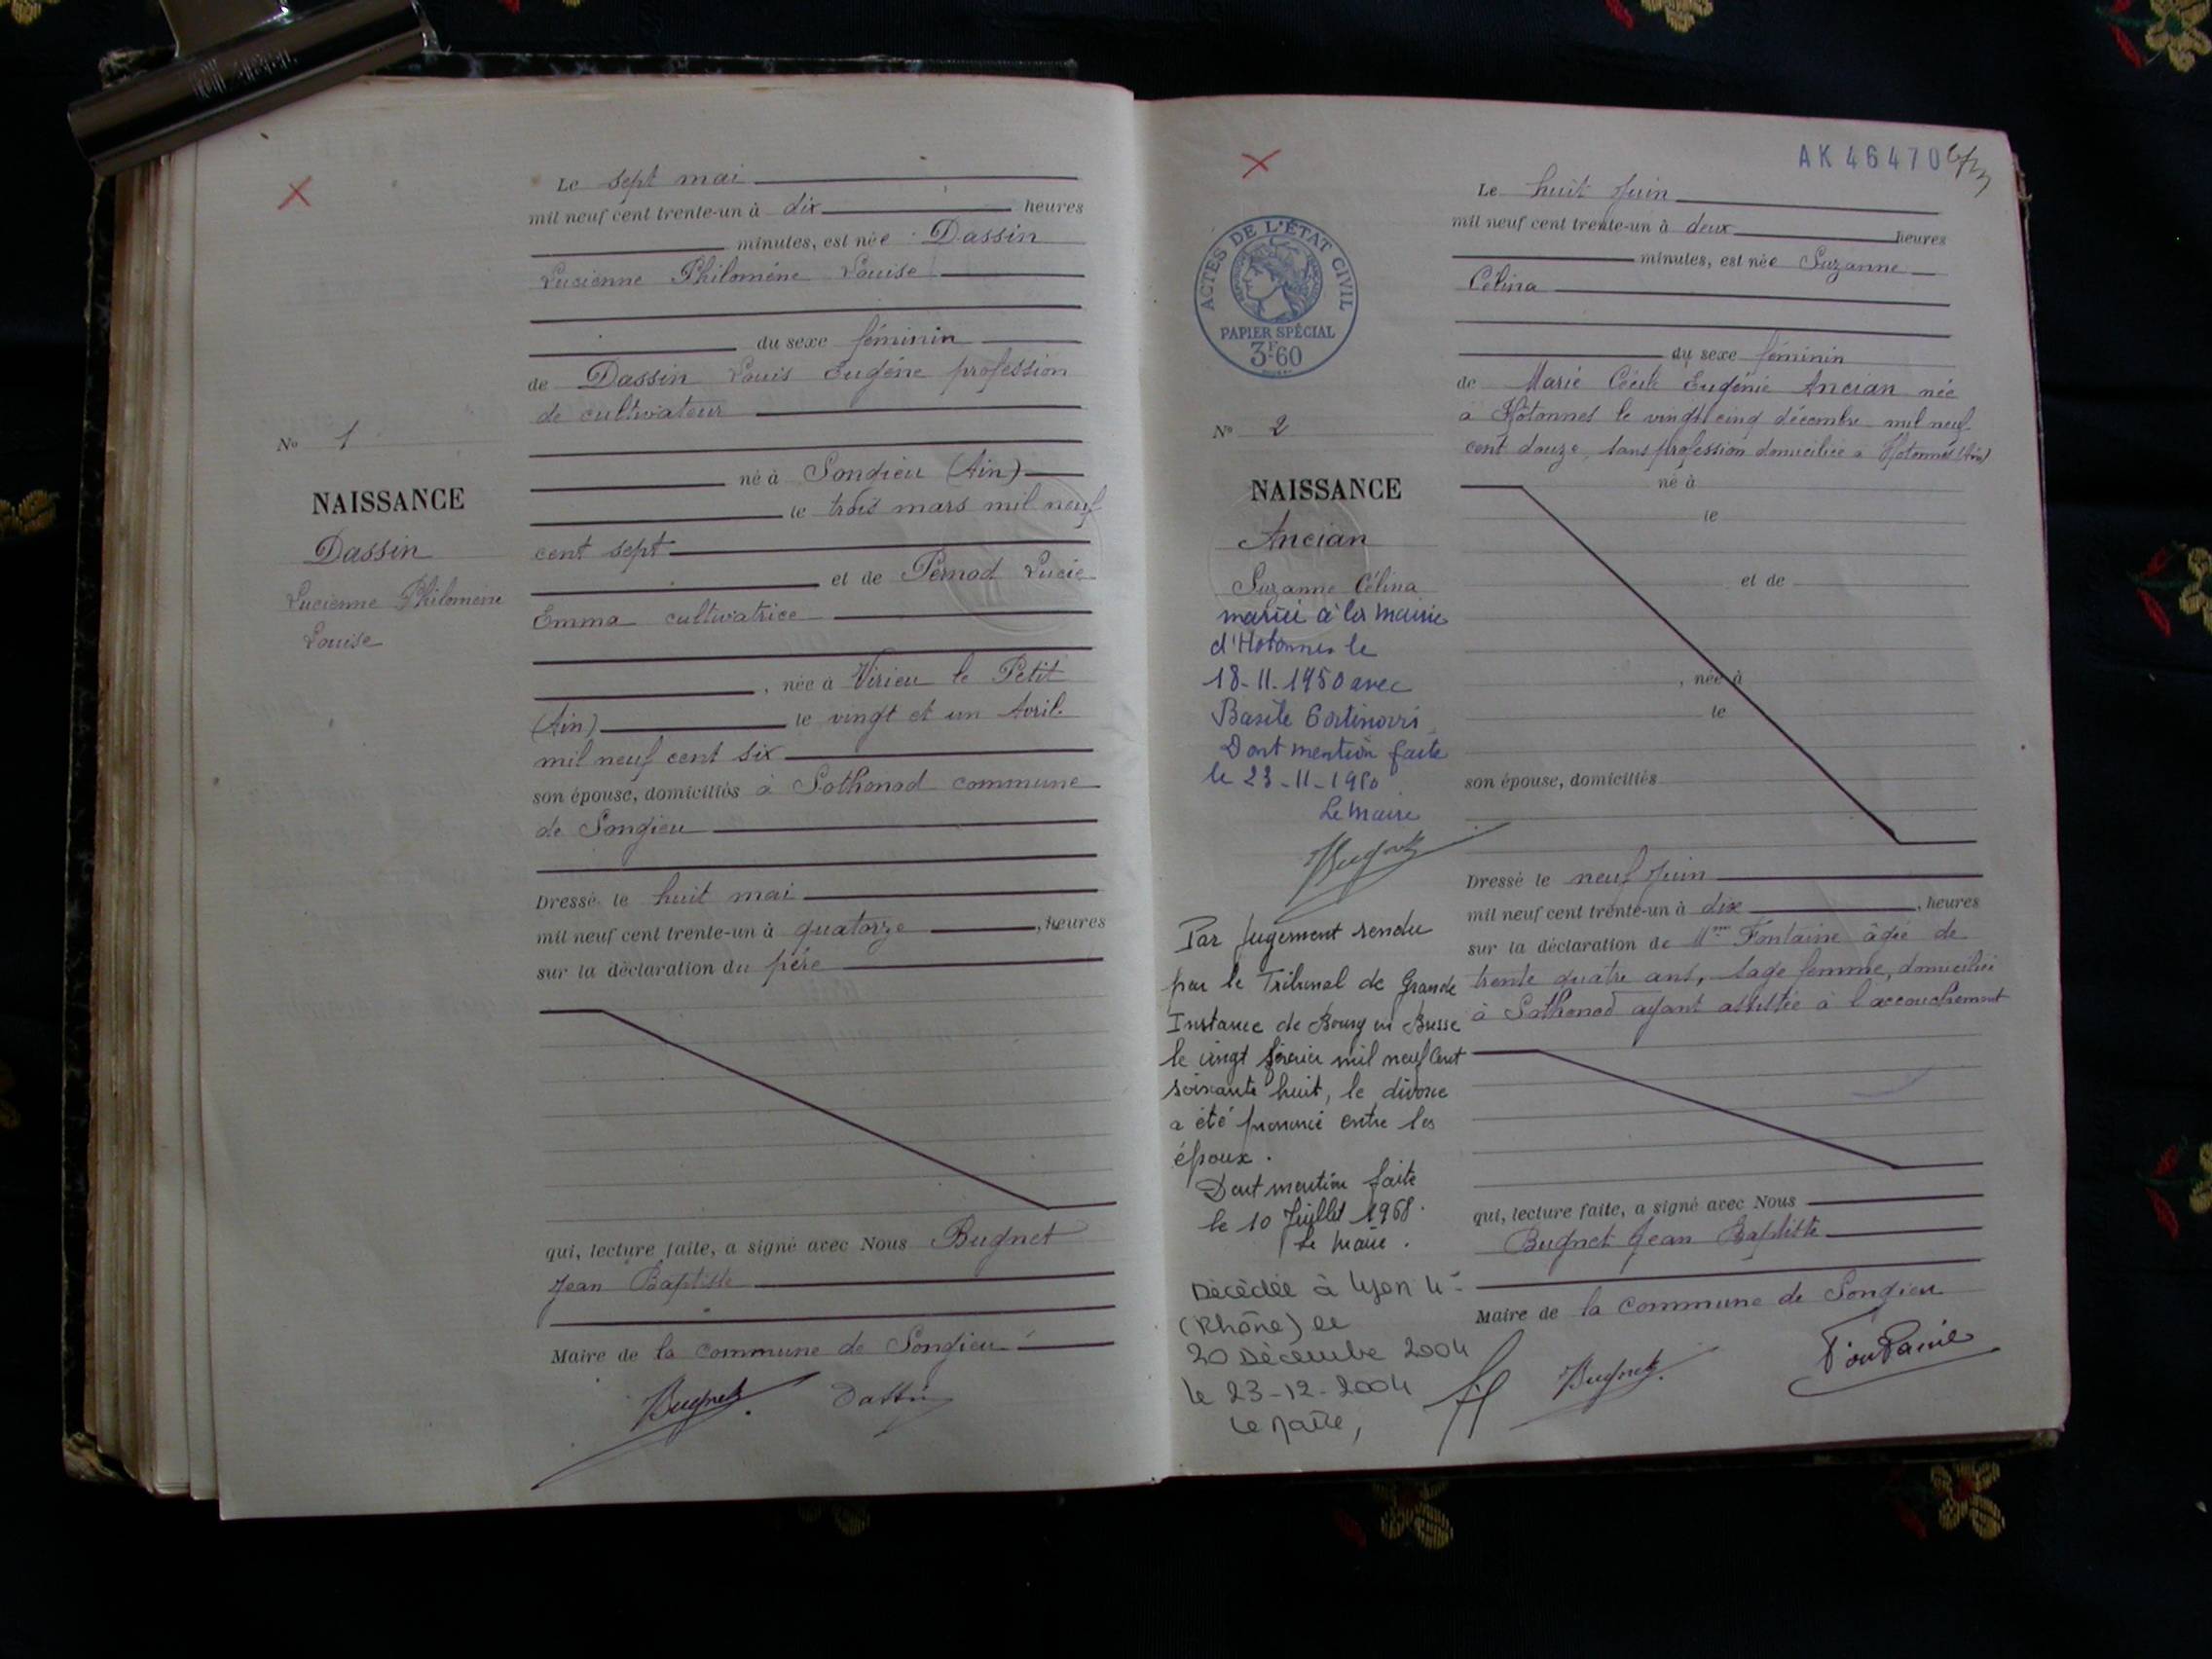 Le sept mai
mil neuf cent trente-un à dix heures
minutes, est née Dassin
Lucienne Philomène Louise
du sexe féminin
de Dassin Louis Eugène profession
de cultivateur
né à Songieu (Ain)
le trois mars mil neuf
cent sept
et de Pernod Lucie
Emma cultivatrice
, née à Virieu le Petit
(Ain) le vingt et un Avril
mil neuf cent six
son épouse, domiciliés à Sothonod commune
de Songieu
Dressé le huit mai
mil neuf cent trente-un à quatorze, heures
sur la déclaration du père
qui, lecture faite, a signé avec Nous Bugnet
Jean Baptiste
Maire de la commune de Songieu
Bugnet Dassin
No 1
NAISSANCE
Dassin
Lucienne Philomène
Louise
AK 46470
ACTES DE L'ÉTAT CIVIL
PAPIER SPÉCIAL
3F60
No 2
NAISSANCE
Ancian
Suzanne Célina
mariée à la mairie
d'Hotonnes le
18-11-1950 avec
Basile
Dont mention faite
le 23-11-1950
Le Maire
Bugnet
Par jugement rendu
par le Tribunal de Grande
Instance de Bourg en Bresse
le vingt février mil neuf Cent
soixante huit, le divorce
a été prononcé entre les
époux.
Dont mention faite
le 10 Juillet 1968.
Le Maire.
Décédée à Lyon 4e
(Rhône) le
20 Décembre 2004
le 23-12-2004
Le Maire,
Le huit Juin
mil neuf cent trente-un à deux heures
minutes, est née Suzanne
Célina
du sexe féminin
de Marie Cécile Eugénie Ancian née
à Hotonnes le vingt cinq décembre mil neuf
cent douze, sans profession domiciliée à Hotonnes (Ain)
né à
le
et de
, née à
le
son épouse, domiciliés
Dressé le neuf Juin
mil neuf cent trente-un à dix, heures
sur la déclaration de Mme Fontaine âgée de
trente quatre ans, sage femme, domiciliée
à Sothonod ayant assistée à l'accouchement
qui, lecture faite, a signé avec Nous
Bugnet Jean Baptiste
Maire de la commune de Songieu
Bugnet Fontaine